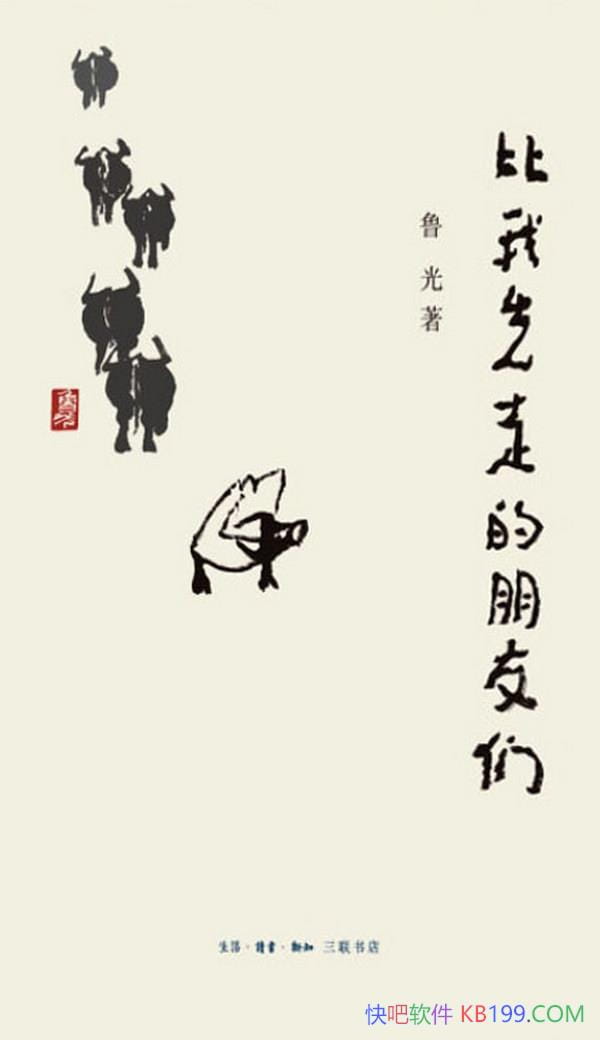 比我先走的朋友们
鲁光著
生活·读书·新知 三联书店
快吧软件 KB199.COM